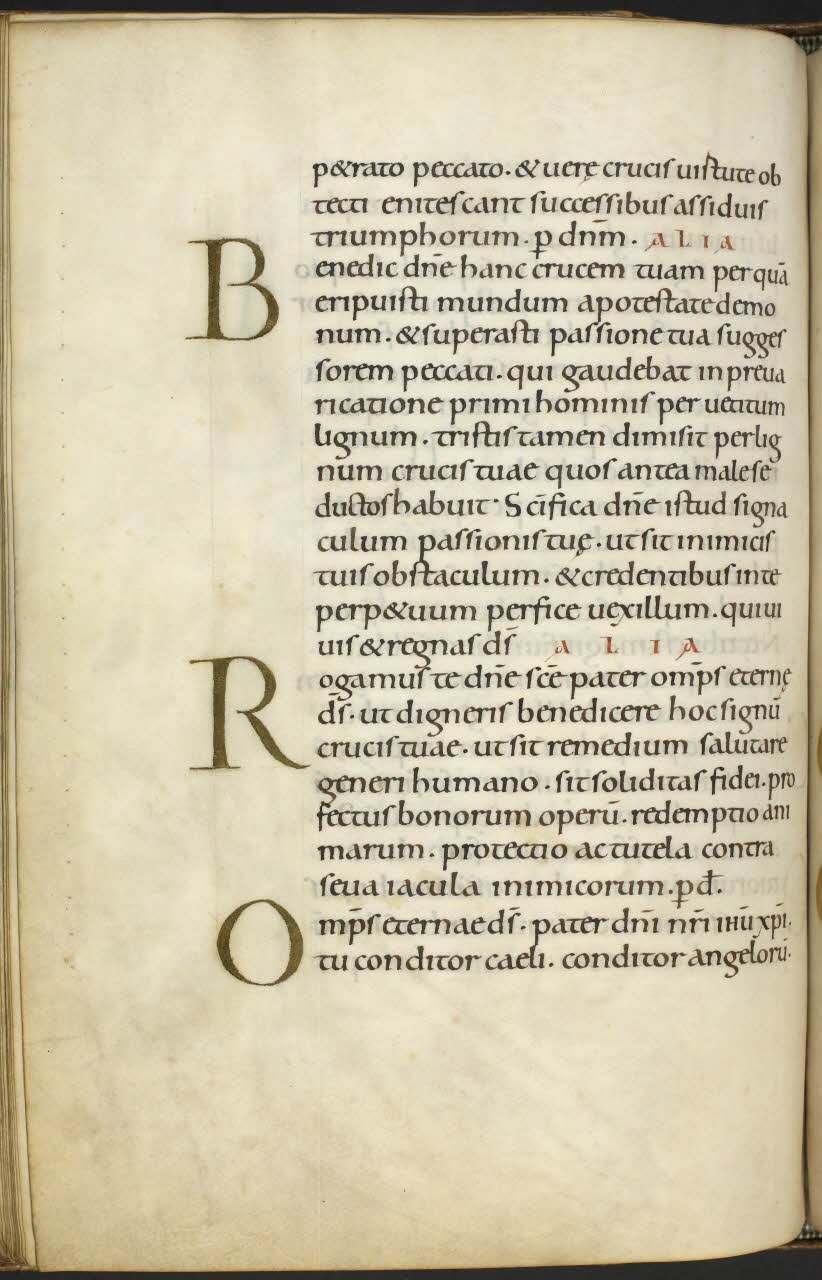 p&rato peccato. & uerę crucis uirtute ob
tecti enitescant successibus assiduis
triumphorum. p̱ dnm̄. ALIA
Benedic dn̄e hanc crucem tuam per quā
eripuisti mundum a potestate demo
num. & superasti passione tua sugges
sorem peccati. qui gaudebat in preua
ricatione primi hominis per uetitum
lignum. tristis tamen dimisit per lig
num crucis tuae quos antea male se
ductos habuit. Sc̄ifica dn̄e istud signa
culum passionis tuę. ut sit inimicis
tuis obstaculum. & credentibus in te
perp&uum perfice uexillum. qui ui
uis & regnas ds̄ ALIA
Rogamus te dn̄e sc̄e pater omp̄s eternę
ds̄. ut digneris benedicere hoc signū
crucis tuae. ut sit remedium salutare
generi humano. sit soliditas fidei. pro
fectus bonorum operū. redemptio ani
marum. protectio ac tutela contra
seua iacula inimicorum. p̱ d̄.
Omp̄s eternae ds̄. pater dn̄i nr̄i ihū xp̄i.
tu conditor caeli. conditor angelorū.